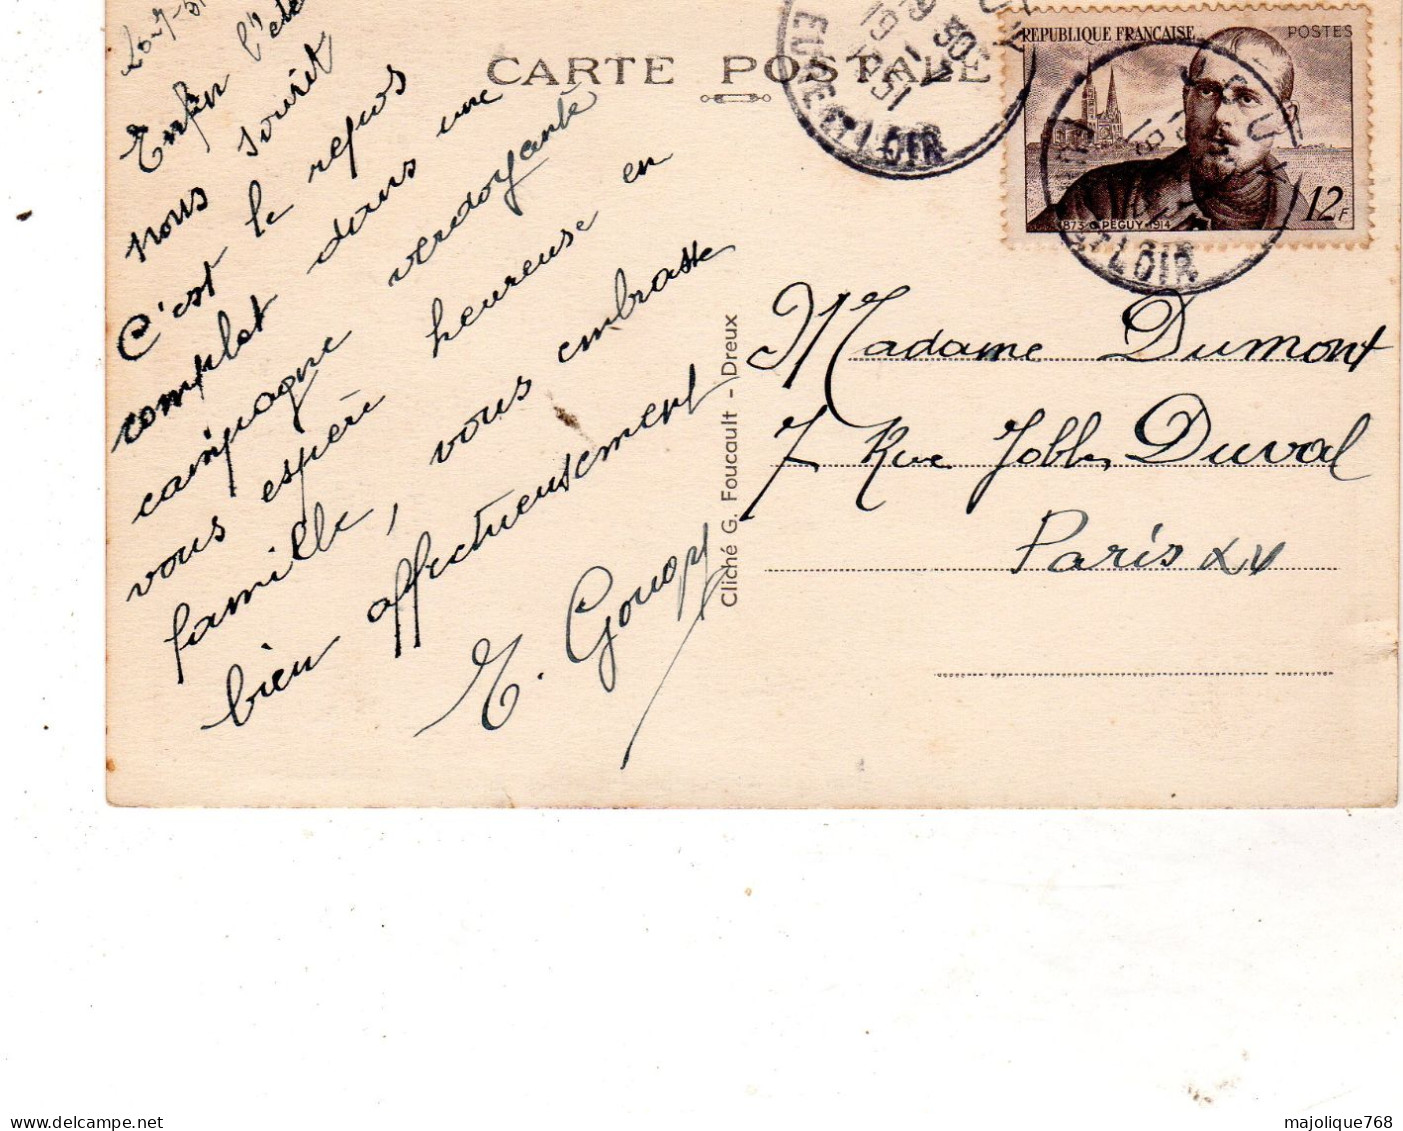 Enfin l'été
nous sourit
C'est le repos
complet dans une
campagne verdoyante
vous espère heureuse en
famille, vous embrasse
bien affectueusement
E. Gouopy
CARTE POSTALE
19 30
19 -7
1951
EURE ET LOIR
REPUBLIQUE FRANÇAISE
POSTES
12F
1873 PEGUY 1914
ET LOIR
Cliché G. Foucault - Dreux
Madame Dumont
7 Rue Jobbé Duval
Paris XV
majolique768